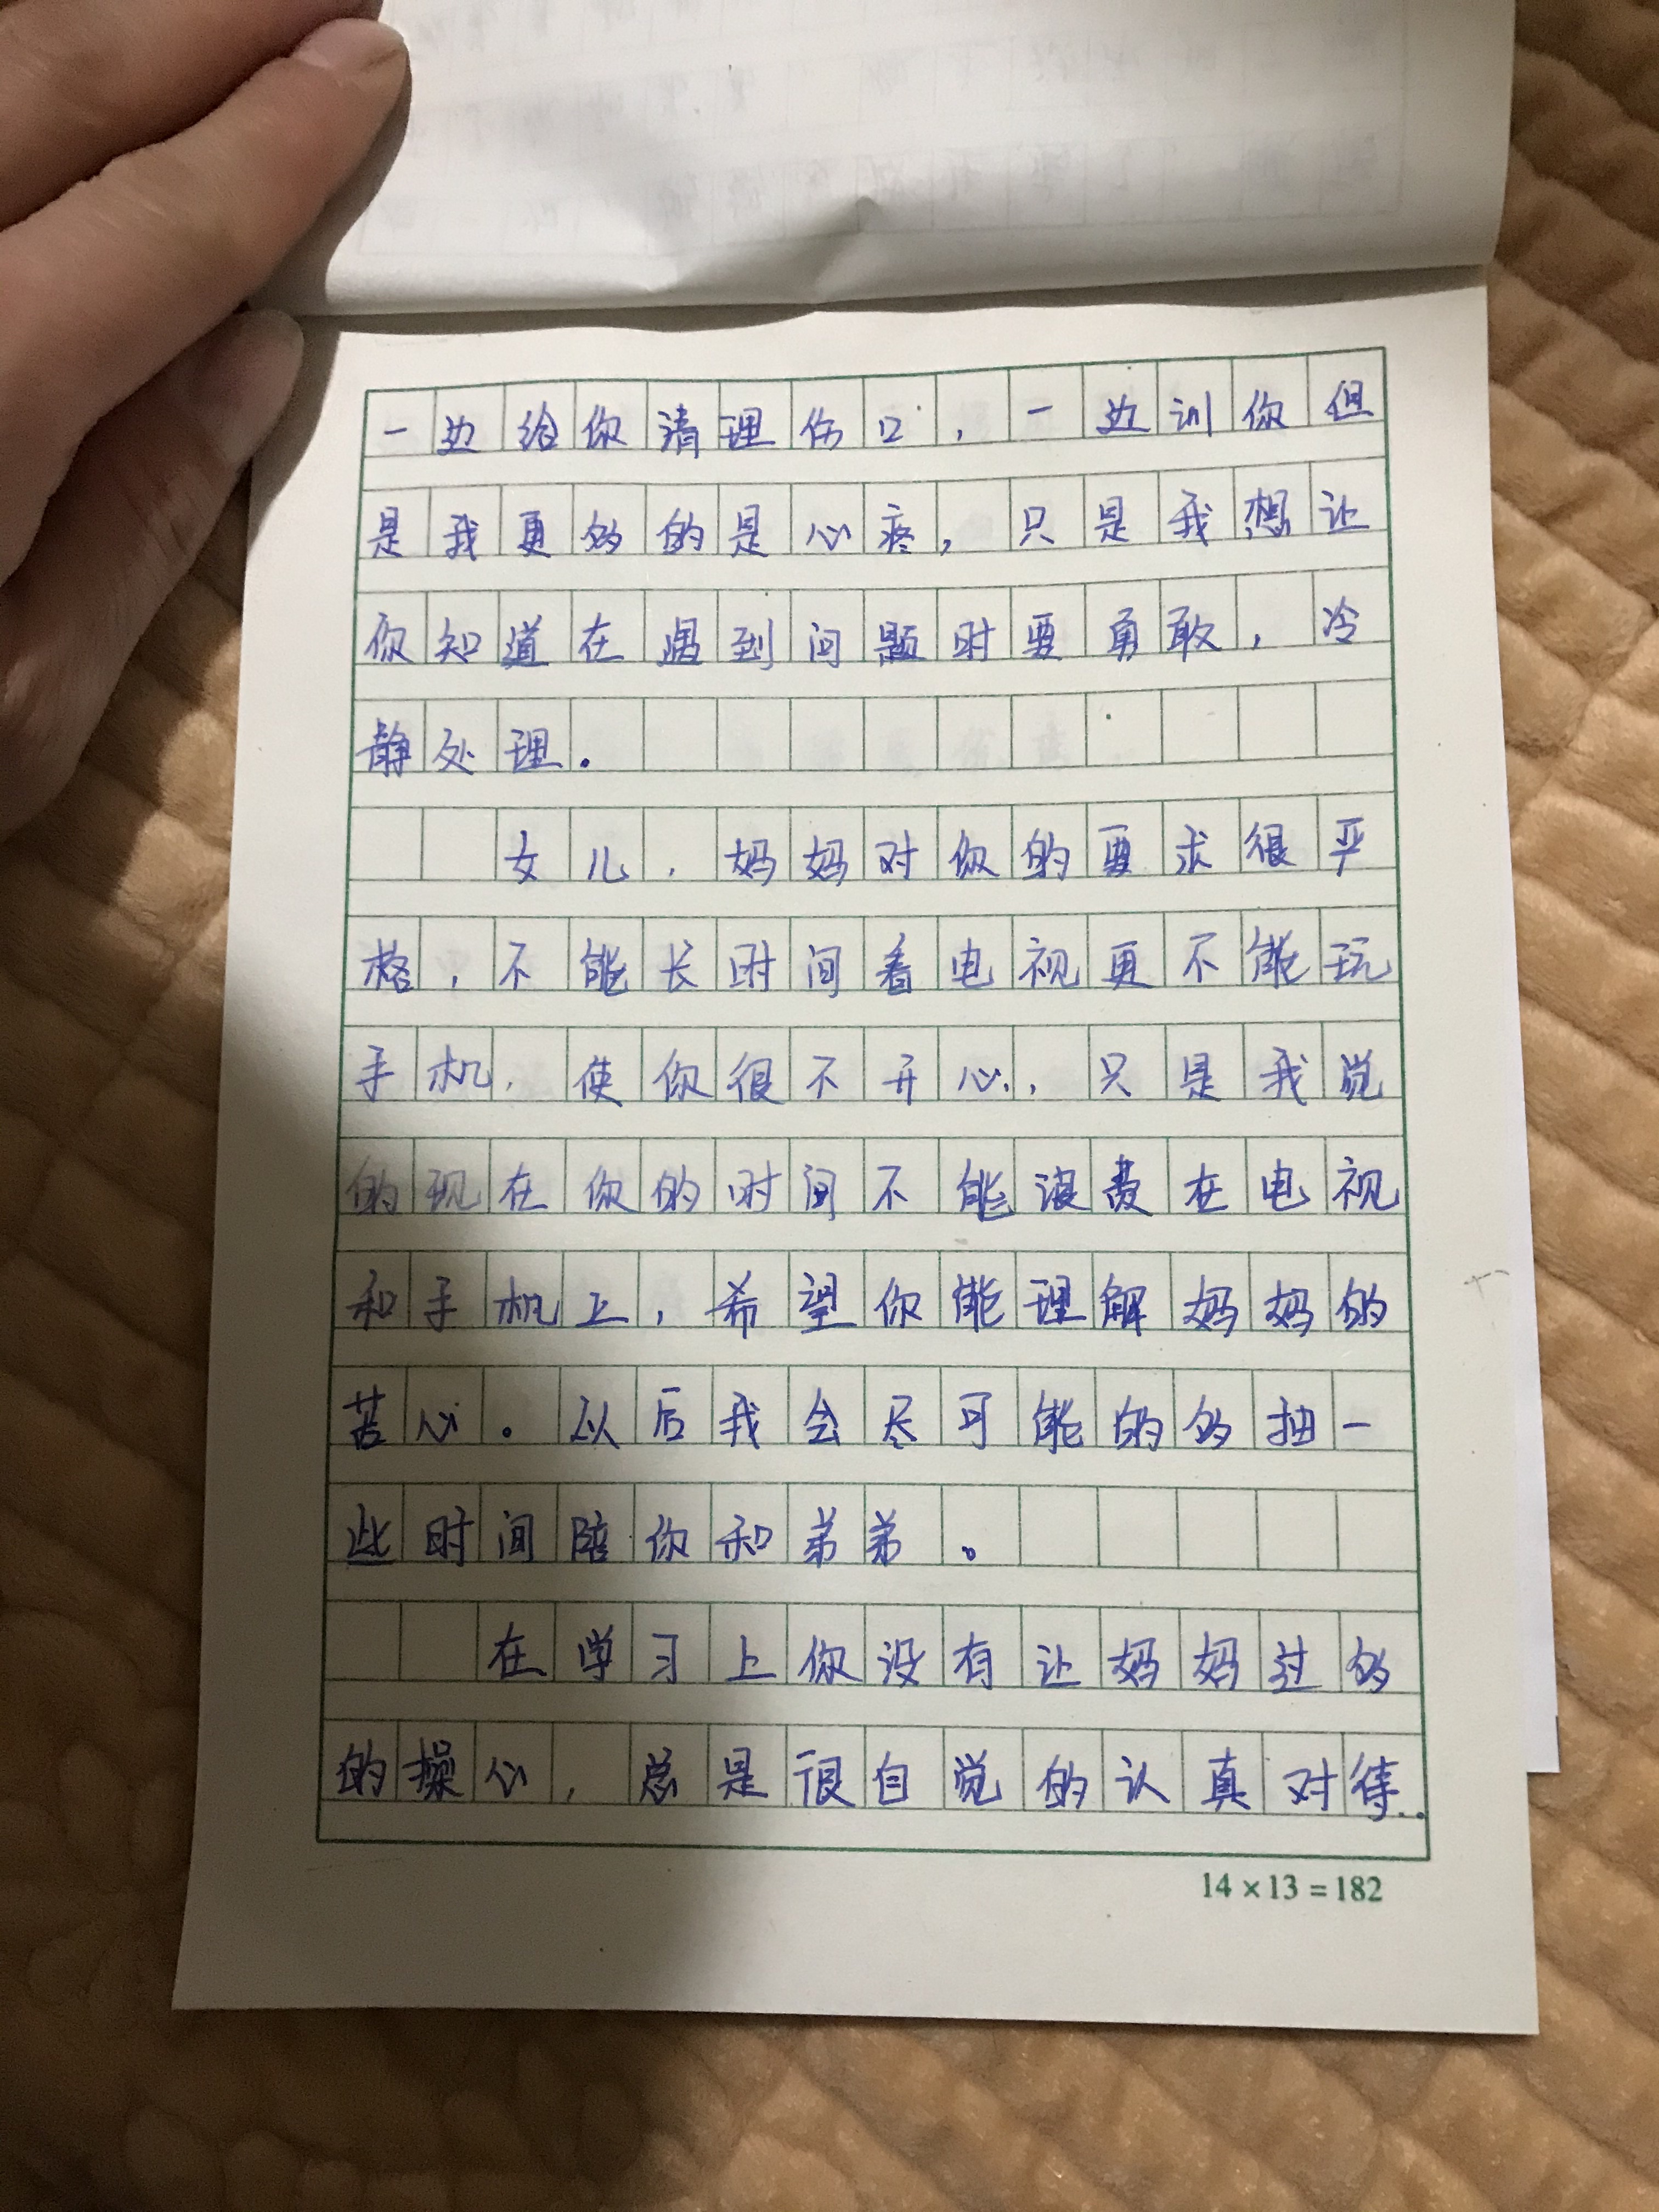 一边给你清理伤口，一边训你但
是我更多的是心疼，只是我想让
你知道在遇到问题时要勇敢，冷
静处理。
女儿，妈妈对你的要求很严
格，不能长时间看电视更不能玩
手机，使你很不开心，只是我觉
的现在你的时间不能浪费在电视
和手机上，希望你能理解妈妈的
苦心。以后我会尽可能的多抽一
些时间陪你和弟弟。
在学习上你没有让妈妈过多
的操心，总是很自觉的认真对待．
14×13=182